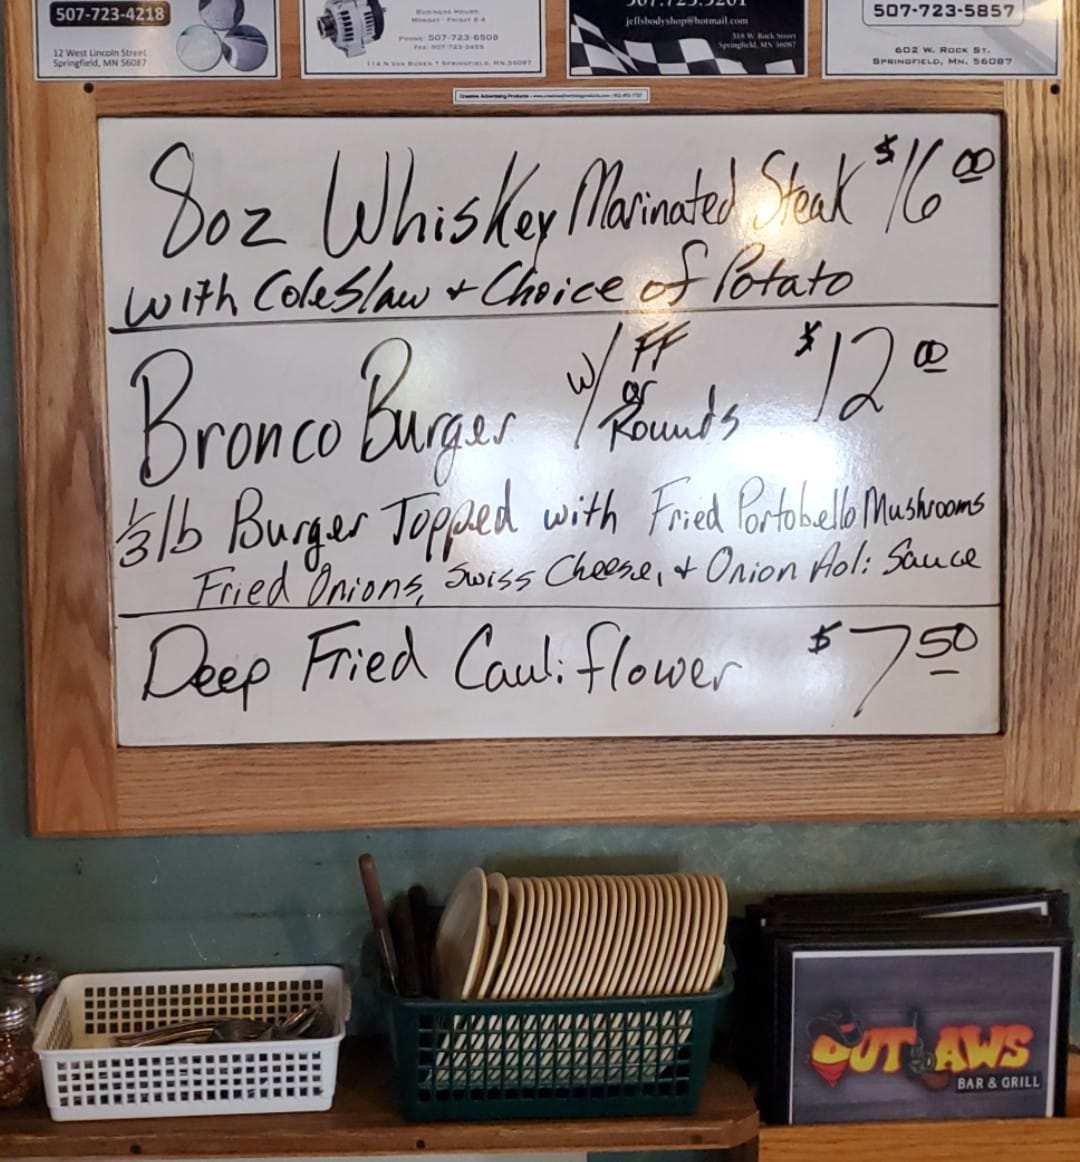 507-723-4218
12 West Lincoln Street
Springfield, MN 56087
Business Hours:
Monday - Friday 8-4
Phone: 507-723-6508
Fax: 507-723-3455
114 N Van Buren • Springfield, MN 56087
507.723.5201
jeffsbodyshop@hotmail.com
318 W. Rock Street
Springfield, MN 56087
507-723-5857
602 W. Rock St.
Springfield, MN. 56087
Creative Advertising Products
8oz Whiskey Marinated Steak $16 00
with Coleslaw + Choice of Potato
Bronco Burger w/ FF or Rounds $12 00
1/3 lb Burger Topped with Fried Portobello Mushrooms
Fried Onions, Swiss Cheese, + Onion Aoli Sauce
Deep Fried Cauliflower $7 50
OUTLAWS
BAR & GRILL